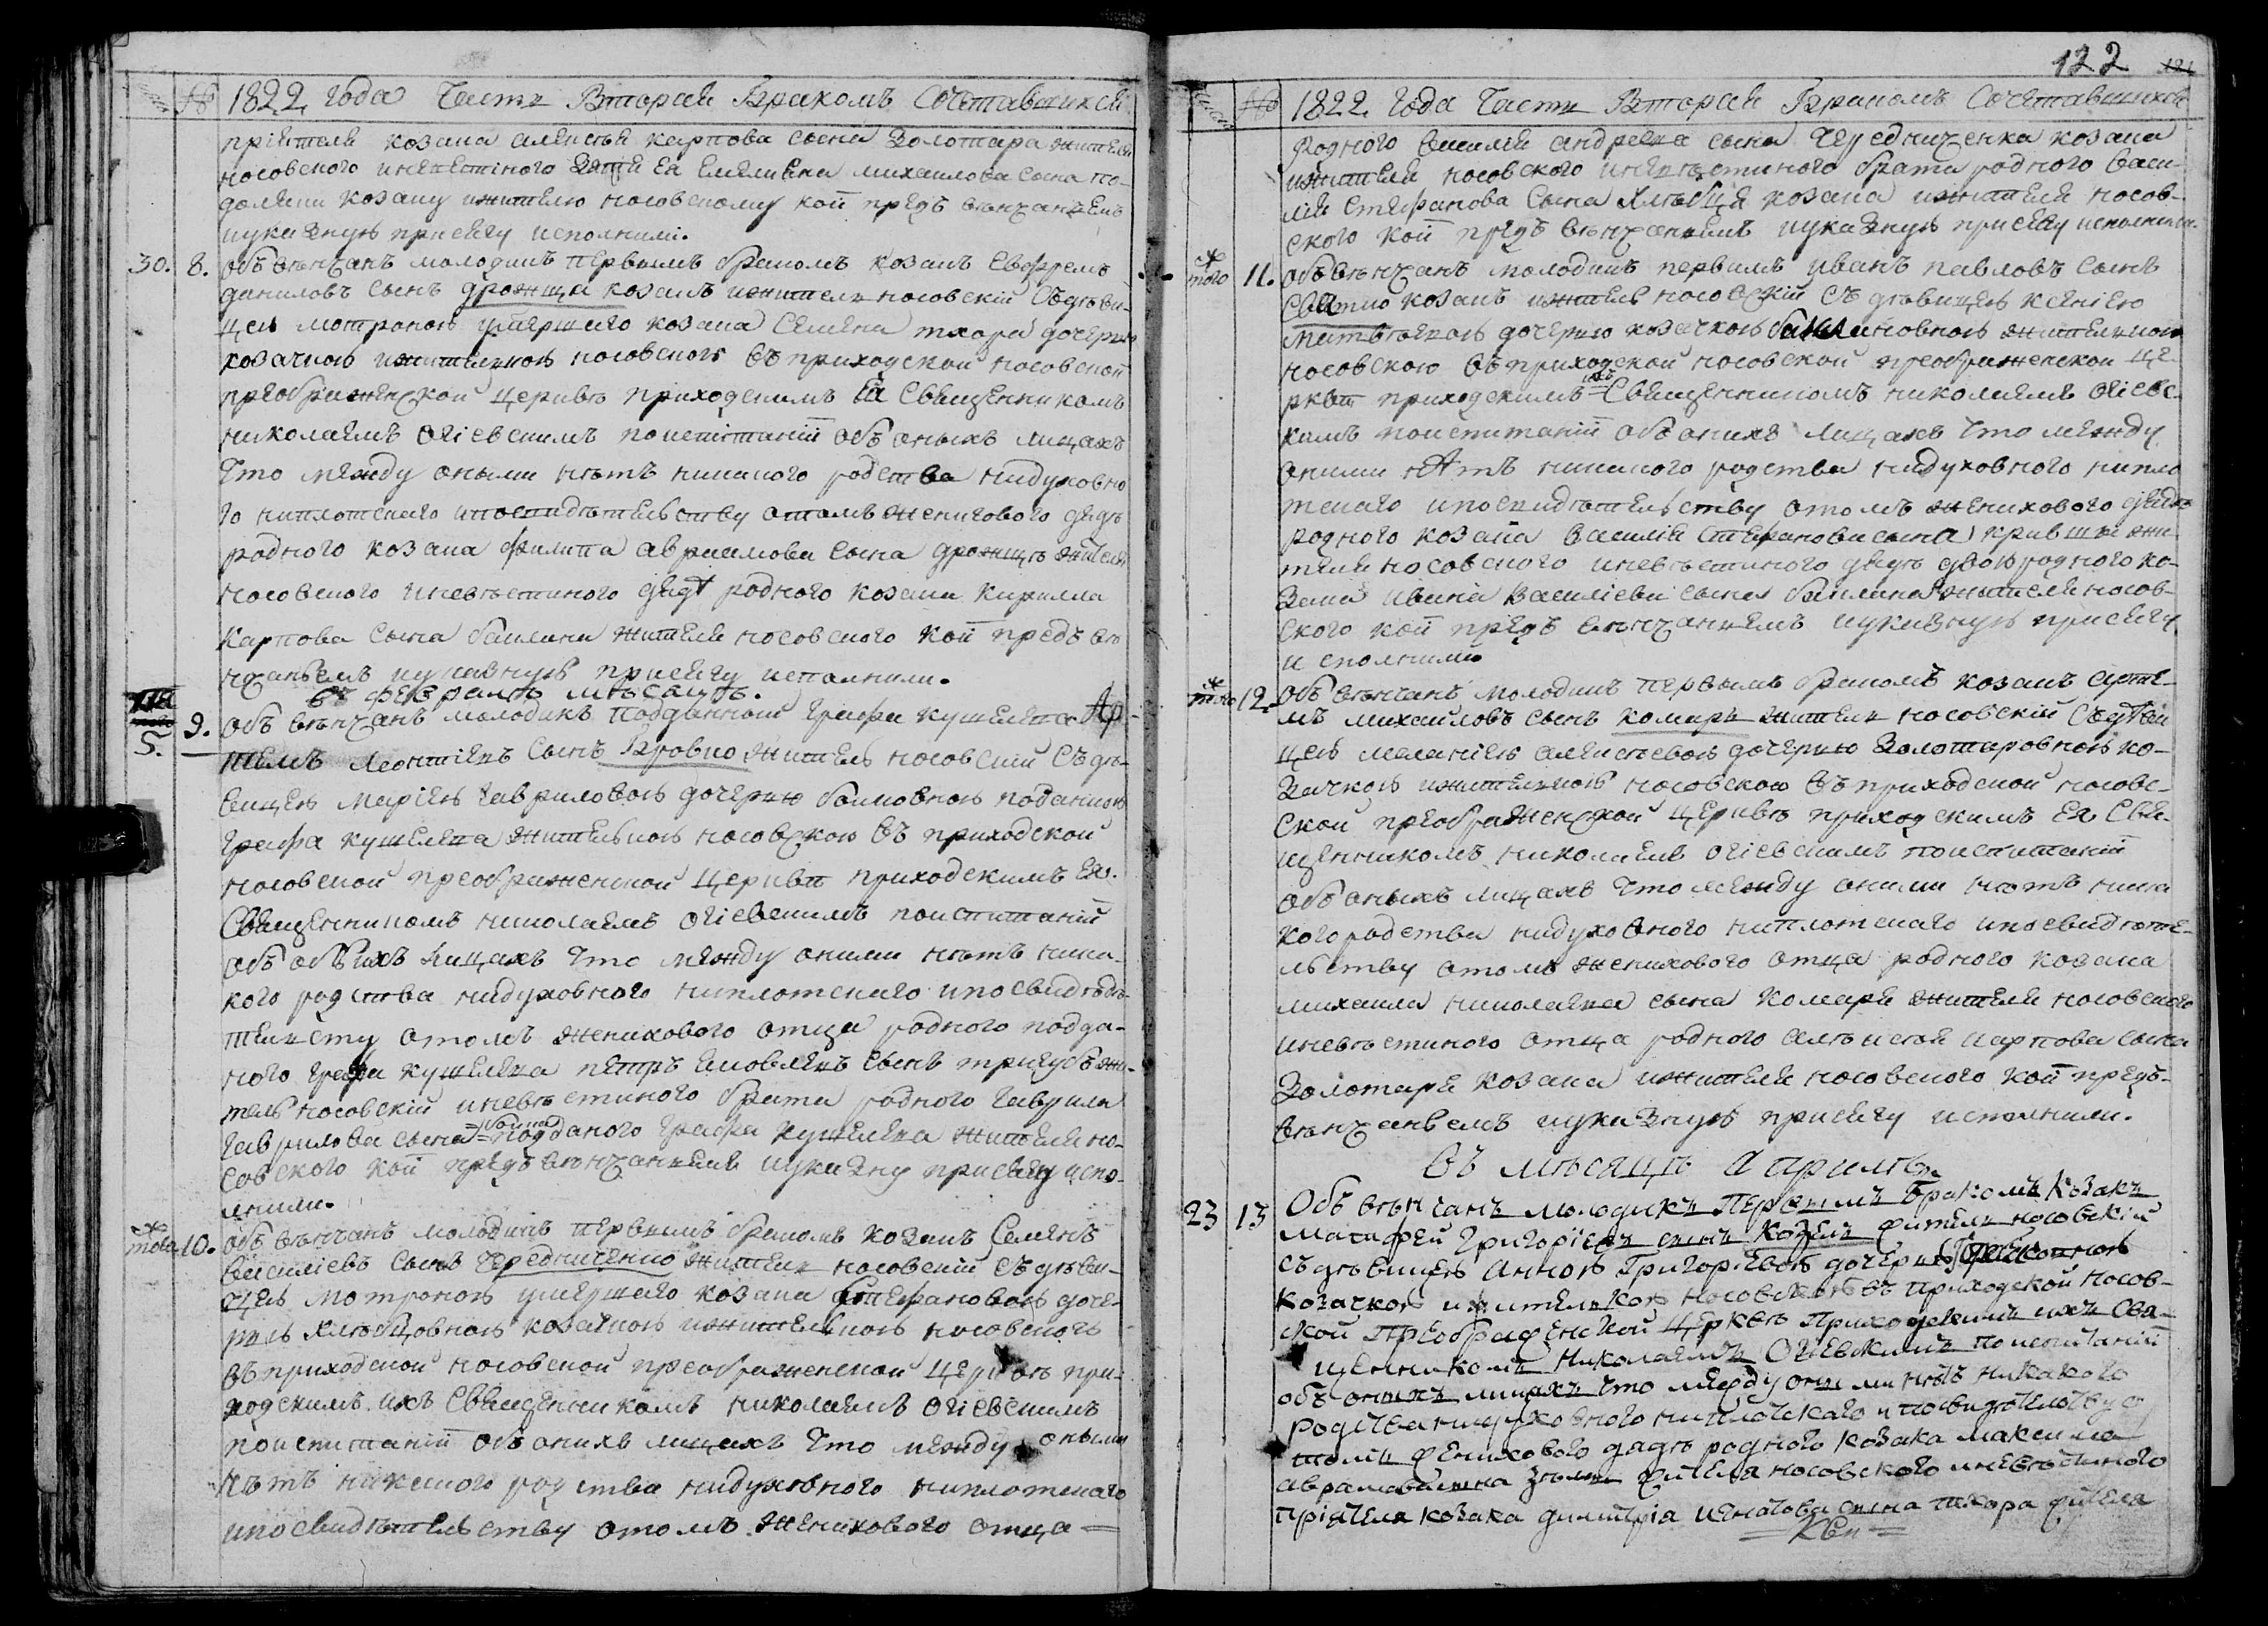 № 1822 года Часть Вторая Бракомъ Сочетавшихся
пріятеля козака алексѣя карпова сына Золотара жителя
носовского иневестного Зятя Ея Емелияна михаилова сына по-
доляки козаку ижителю носовскому кои предъ вѣнчаніемъ
иуказную присягу исполнили.
30. 8. объ вѣнчанъ молодикъ первымъ бракомъ козакъ Евфремъ
даниловъ сынъ дрожща козакъ ижитель носовскій съ дѣви-
цею мотроною умершого козака Семена тхора дочерю
козачкою ижителкою носовскою въ приходской носовской
преображенской церквѣ приходскимъ Ея Священникомъ
николаемъ огіевскимъ поиспитаніи объ оныхъ лицахъ
Что между оными нѣтъ никакого родства нидуховно
го ниплотскаго ипосвидѣтельству отомъ женихового дядѣ
родного козака филипа авраамова сына дрожщѣ жителя
носовского иневѣстиного дядѣ родного козака кирилла
карпова сына баклана жителя носовского кои предъ вѣ
нчаніемъ иуказную присягу исполнили.
въ февралѣ мѣсацѣ.
5. 9. объ вѣнчанъ молодикъ подданный графа кушелева Ар-
темъ Леонтіевъ сынъ Бровко житель носовскій съ дѣ-
вицею маріею гавриловою дочерю бойковною поданною
графа кушелева жителкою носовскою въ приходской
носовской преображенской церкви приходскимъ Ея.
Священникомъ николаемъ огіевскимъ поиспитаніи
объ обѣихъ лицахъ Что между оними нѣтъ ника-
кого родства нидуховного ниплотскаго ипосвидѣ-
телству отомъ женихового отца родного подда-
ного графа кушелева петръ яковлевъ сынъ тригубъ жи-
тель носовскій иневѣстиного брата родного гаврила
гаврилова сына бойка подданого графа кушелева жителя но-
совского кои предъ вѣнчаніемъ иуказну присягу испо-
лнили.
того 10. объ вѣнчанъ молодикъ первымъ бракомъ козакъ Семенъ
василіевъ сынъ Чередниченко житель носовскій съ дѣви-
цею мотроною умершаго козака Стефановою доче-
рю хлѣбцовною козачкою ижителкою носовскою
въ приходской носовской преображенской церквѣ при-
ходскимъ ихъ Священникомъ николаемъ огіевскимъ
поиспитаніи объ онихъ лицахъ Что между оными
нѣтъ никакого родства нидуховного ниплотскаго
ипосвидѣтельству отомъ женихового отца =
122
№ 1822 года Часть Вторая Бракомъ Сочетавшихся
родного василія андреева сына Чередниченка козака
ижителя носовского иневѣстиного брата родного васи-
лія стефанова сына хлѣбца козака ижителя носов-
ского кои предъ вѣнчаніемъ иуказную присягу исполнили.
того 11. объ вѣнчанъ молодикъ первимъ иванъ павловъ сынъ
козакъ житель носовскій съ дѣвицею ксеніею
матвѣевою дочерю козачкою баклановною жителкою
носовскою въ приходской носовской преображенской це-
ркви приходскимъ ихъ Священникомъ николаемъ огіевс-
кимъ поиспитаніи объ онихъ лицахъ Что между
оними нѣтъ никакого родства нидуховного нипло
тскаго ипосвидѣтельству отомъ женихового дядѣ
родного козака василія стефанова сына кривши жи
теля носовского иневѣстиного дядѣ двоюродного ко-
зака ивана василіева сына баклана жителя носов-
ского кои предъ вѣнчаніемъ иуказную присягу
исполнили
того 12. объ вѣнчанъ молодикъ первымъ бракомъ козакъ арте-
мъ михаиловъ сынъ комаръ житель носовскій съ дѣви
цею меланіею алексѣевою дочерю Золотаровною ко-
зачкою ижителкою носовскою въ приходской носовс-
ской преображенской церквѣ приходскимъ Ея Свя-
щенникомъ николаемъ огіевскимъ поиспитаніи
объ оныхъ лицахъ Что между оними нѣтъ ника
кого родства нидуховного ниплотскаго ипосвидѣте-
льству отомъ женихового отца родного козака
михаила николаева сына комаря жителя носовского
иневѣстиного отца родного алексѣя карпова сына
Золотаря козака ижителя носовского кои предъ
вѣнчаніемъ иуказную присягу исполнили.
Въ мѣсяцѣ Априлѣ.
23 13 Объ вѣнчанъ молодикъ Первымъ Бракомъ Козакъ
Матифей Григоріевъ сынъ Козелъ житель носовскій
съ дѣвицею Анною Григорьевою дочерю
козачкою ижителькою носовскою въ приходской носов-
ской Преображенской церквѣ Приходскимъ ихъ Свя-
щенникомъ Николаемъ Огіевскимъ поиспитаніи
объ онихъ лицахъ что между оними нѣтъ никакого
родства нидуховного ниплотскаго ипосвидѣтельству о
томъ женихового дядѣ родного козака максима
аврамова сына жителя носовского иневѣстиного
пріятеля козака димитрія игнатова сына тхора жителя